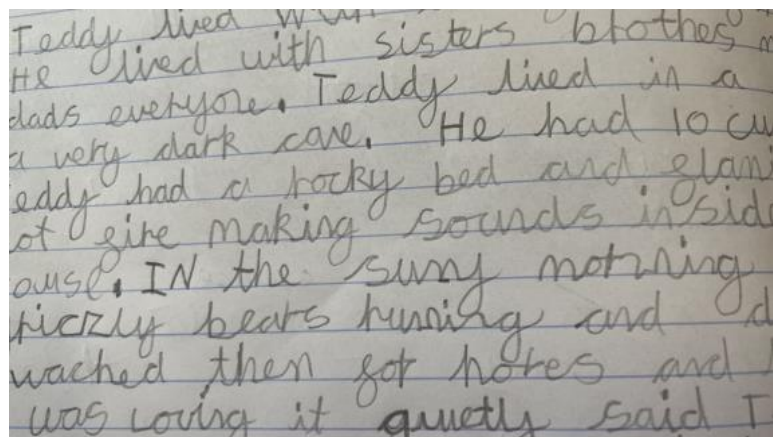 Teddy lived
He lived with sisters brothes
dads everyone. Teddy lived in a
a very dark cave. He had 10 cu
eddy had a rocky bed and
ot fire making sounds insid
ouse. IN the suny morning
riczly bears running and d
wached then for hores and
was loving it quietly said I